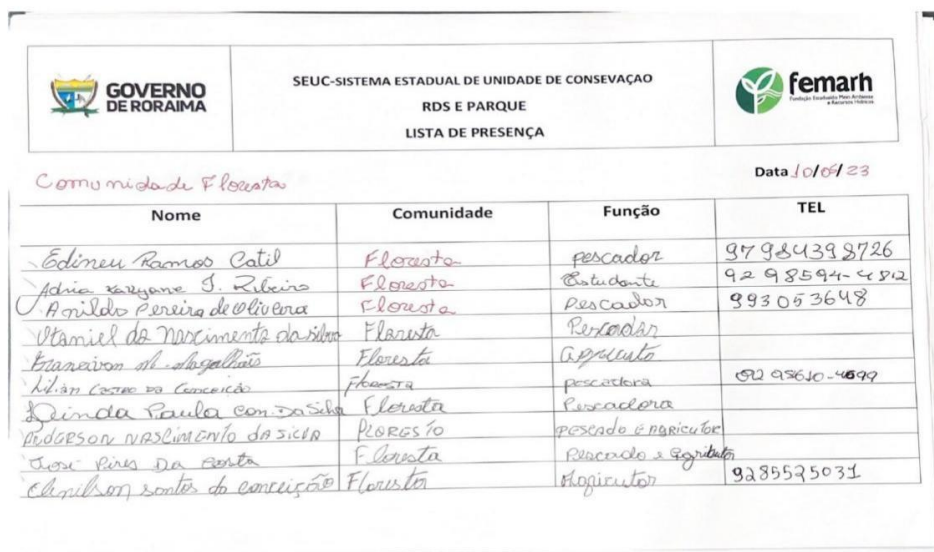 GOVERNO
DE RORAIMA
SEUC-SISTEMA ESTADUAL DE UNIDADE DE CONSEVAÇAO
RDS E PARQUE
LISTA DE PRESENÇA
femarh
Comunidade Floresta
Data 10/05/23
Nome Comunidade Função TEL
Edineu Ramos Catil Floresta pescador 97 984398726
Adria Karyane Ribeiro Floresta Estudante 92 98594-4812
Anildo Pereira de Oliveira Floresta Pescador 993053648
do Nascimento da Silva Floresta Pescador
Magalhães Floresta
Lilian Castro da Conceição Floresta pescadora 92 98610-4699
Paula Con. Da Silva Floresta Pescadora
ANDERSON NASCIMENTO DA SILVA FLORESTO PESCADO E AGRICUTOR
José Pires Da Costa Floresta Pescado e Agributor
Clenilson santos da conceição Floresta Agricutor 9285525031